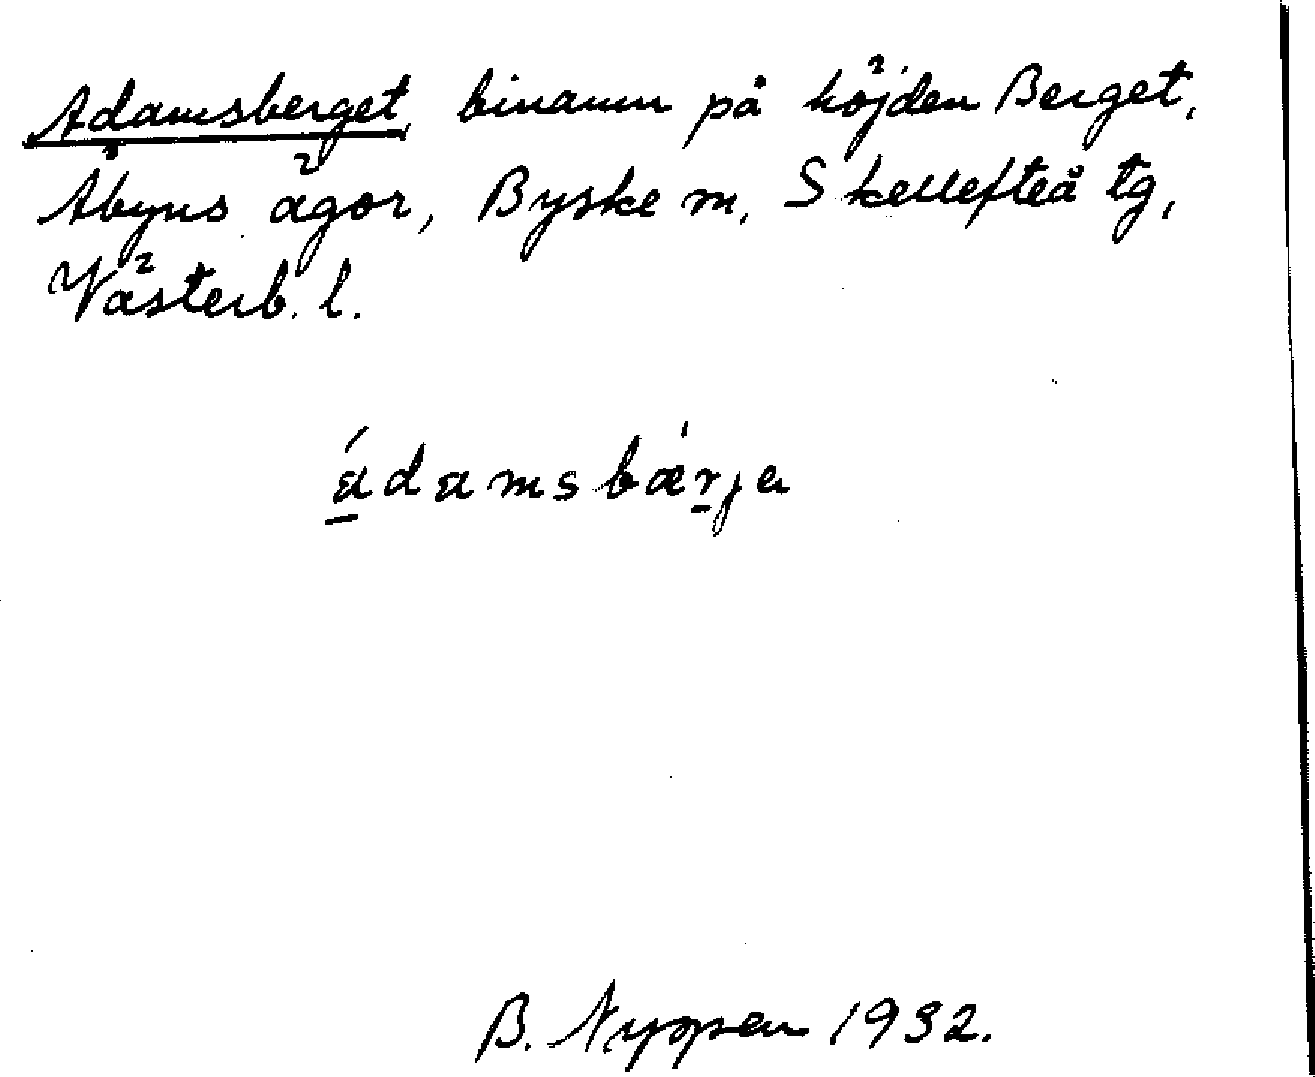 Adamsberget, binamn på höjden Berget,
Åbyns ägor, Byske sn, Skellefteå tg,
Västerb. l.
ádamsbærja
B. Nyppen 1932.